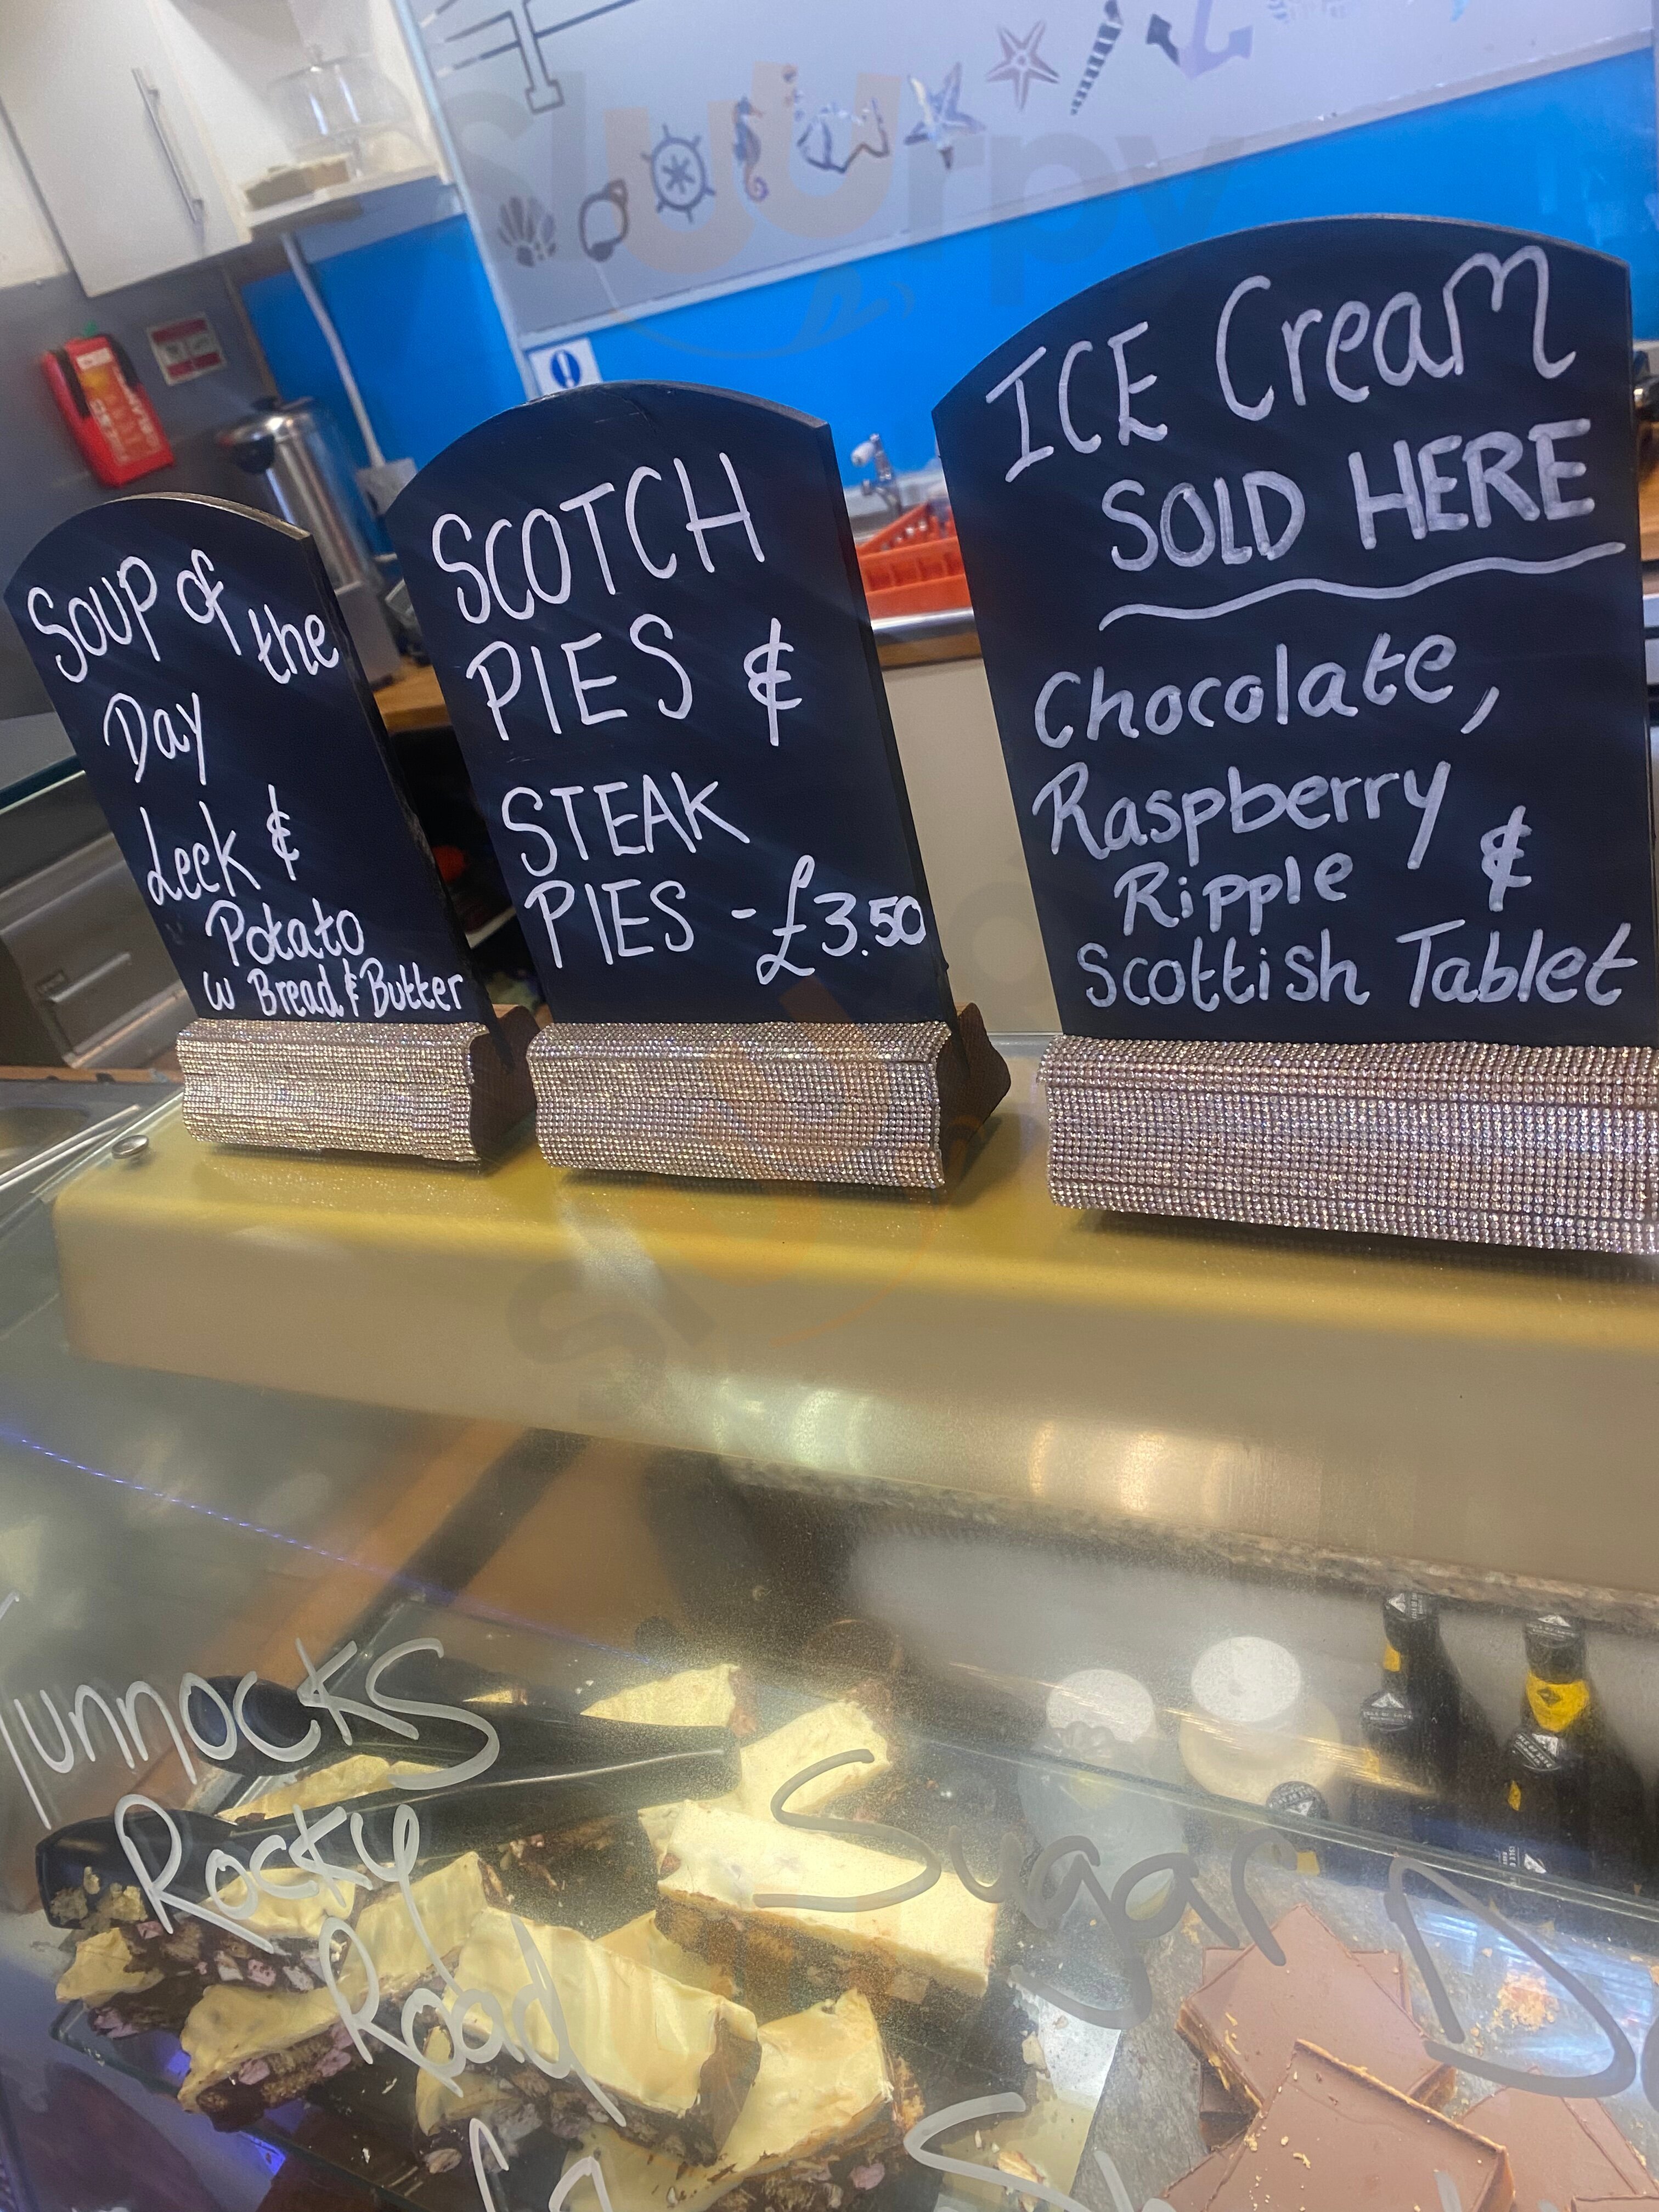 Sluurpy
Soup of the
Day
Leek &
Potato
w Bread & Butter
SCOTCH
PIES &
STEAK
PIES - £3.50
ICE Cream
SOLD HERE
Chocolate,
Raspberry
Ripple &
Scottish Tablet
Tunnocks
Rocky
Road
Sugar